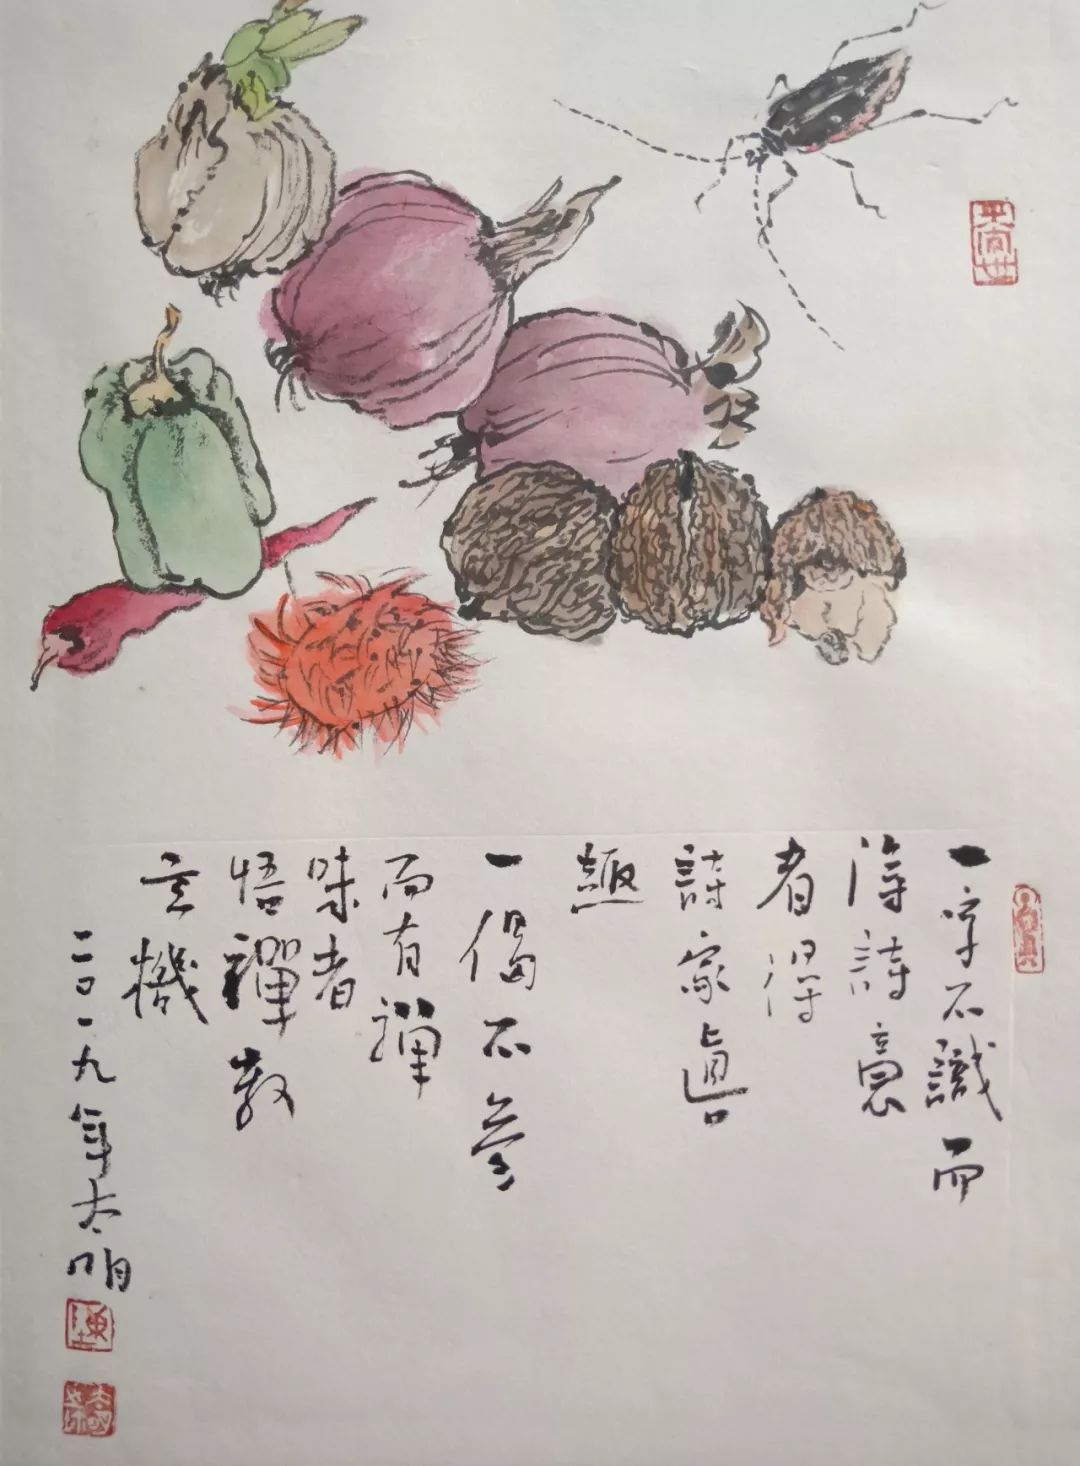 一字不識而
得詩意
者得
詩家真
趣
一偈不參
而有禪
味者
悟禪教
玄機
二〇一九年太明